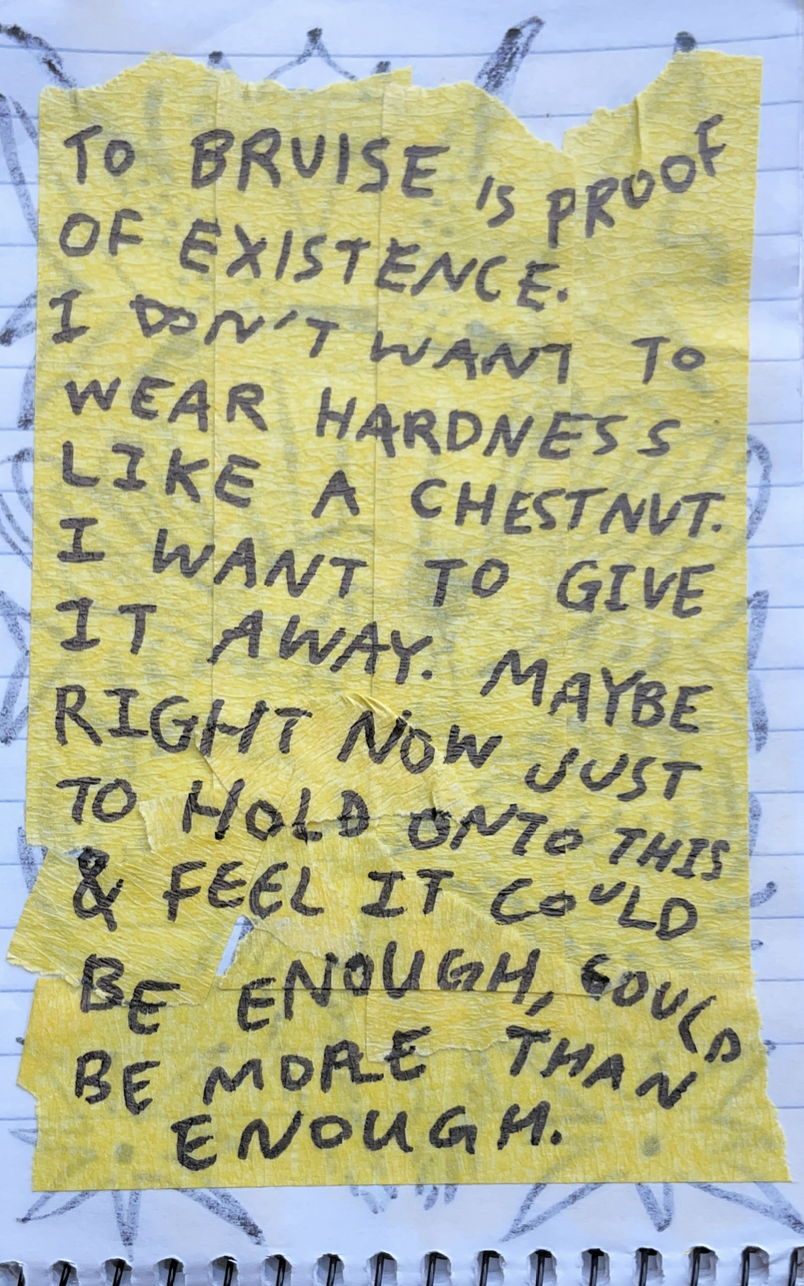 TO BRUISE IS PROOF
OF EXISTENCE.
I DON'T WANT TO
WEAR HARDNESS
LIKE A CHESTNUT.
I WANT TO GIVE
IT AWAY. MAYBE
RIGHT NOW JUST
TO HOLD ONTO THIS
& FEEL IT COULD
BE ENOUGH, COULD
BE MORE THAN
ENOUGH.